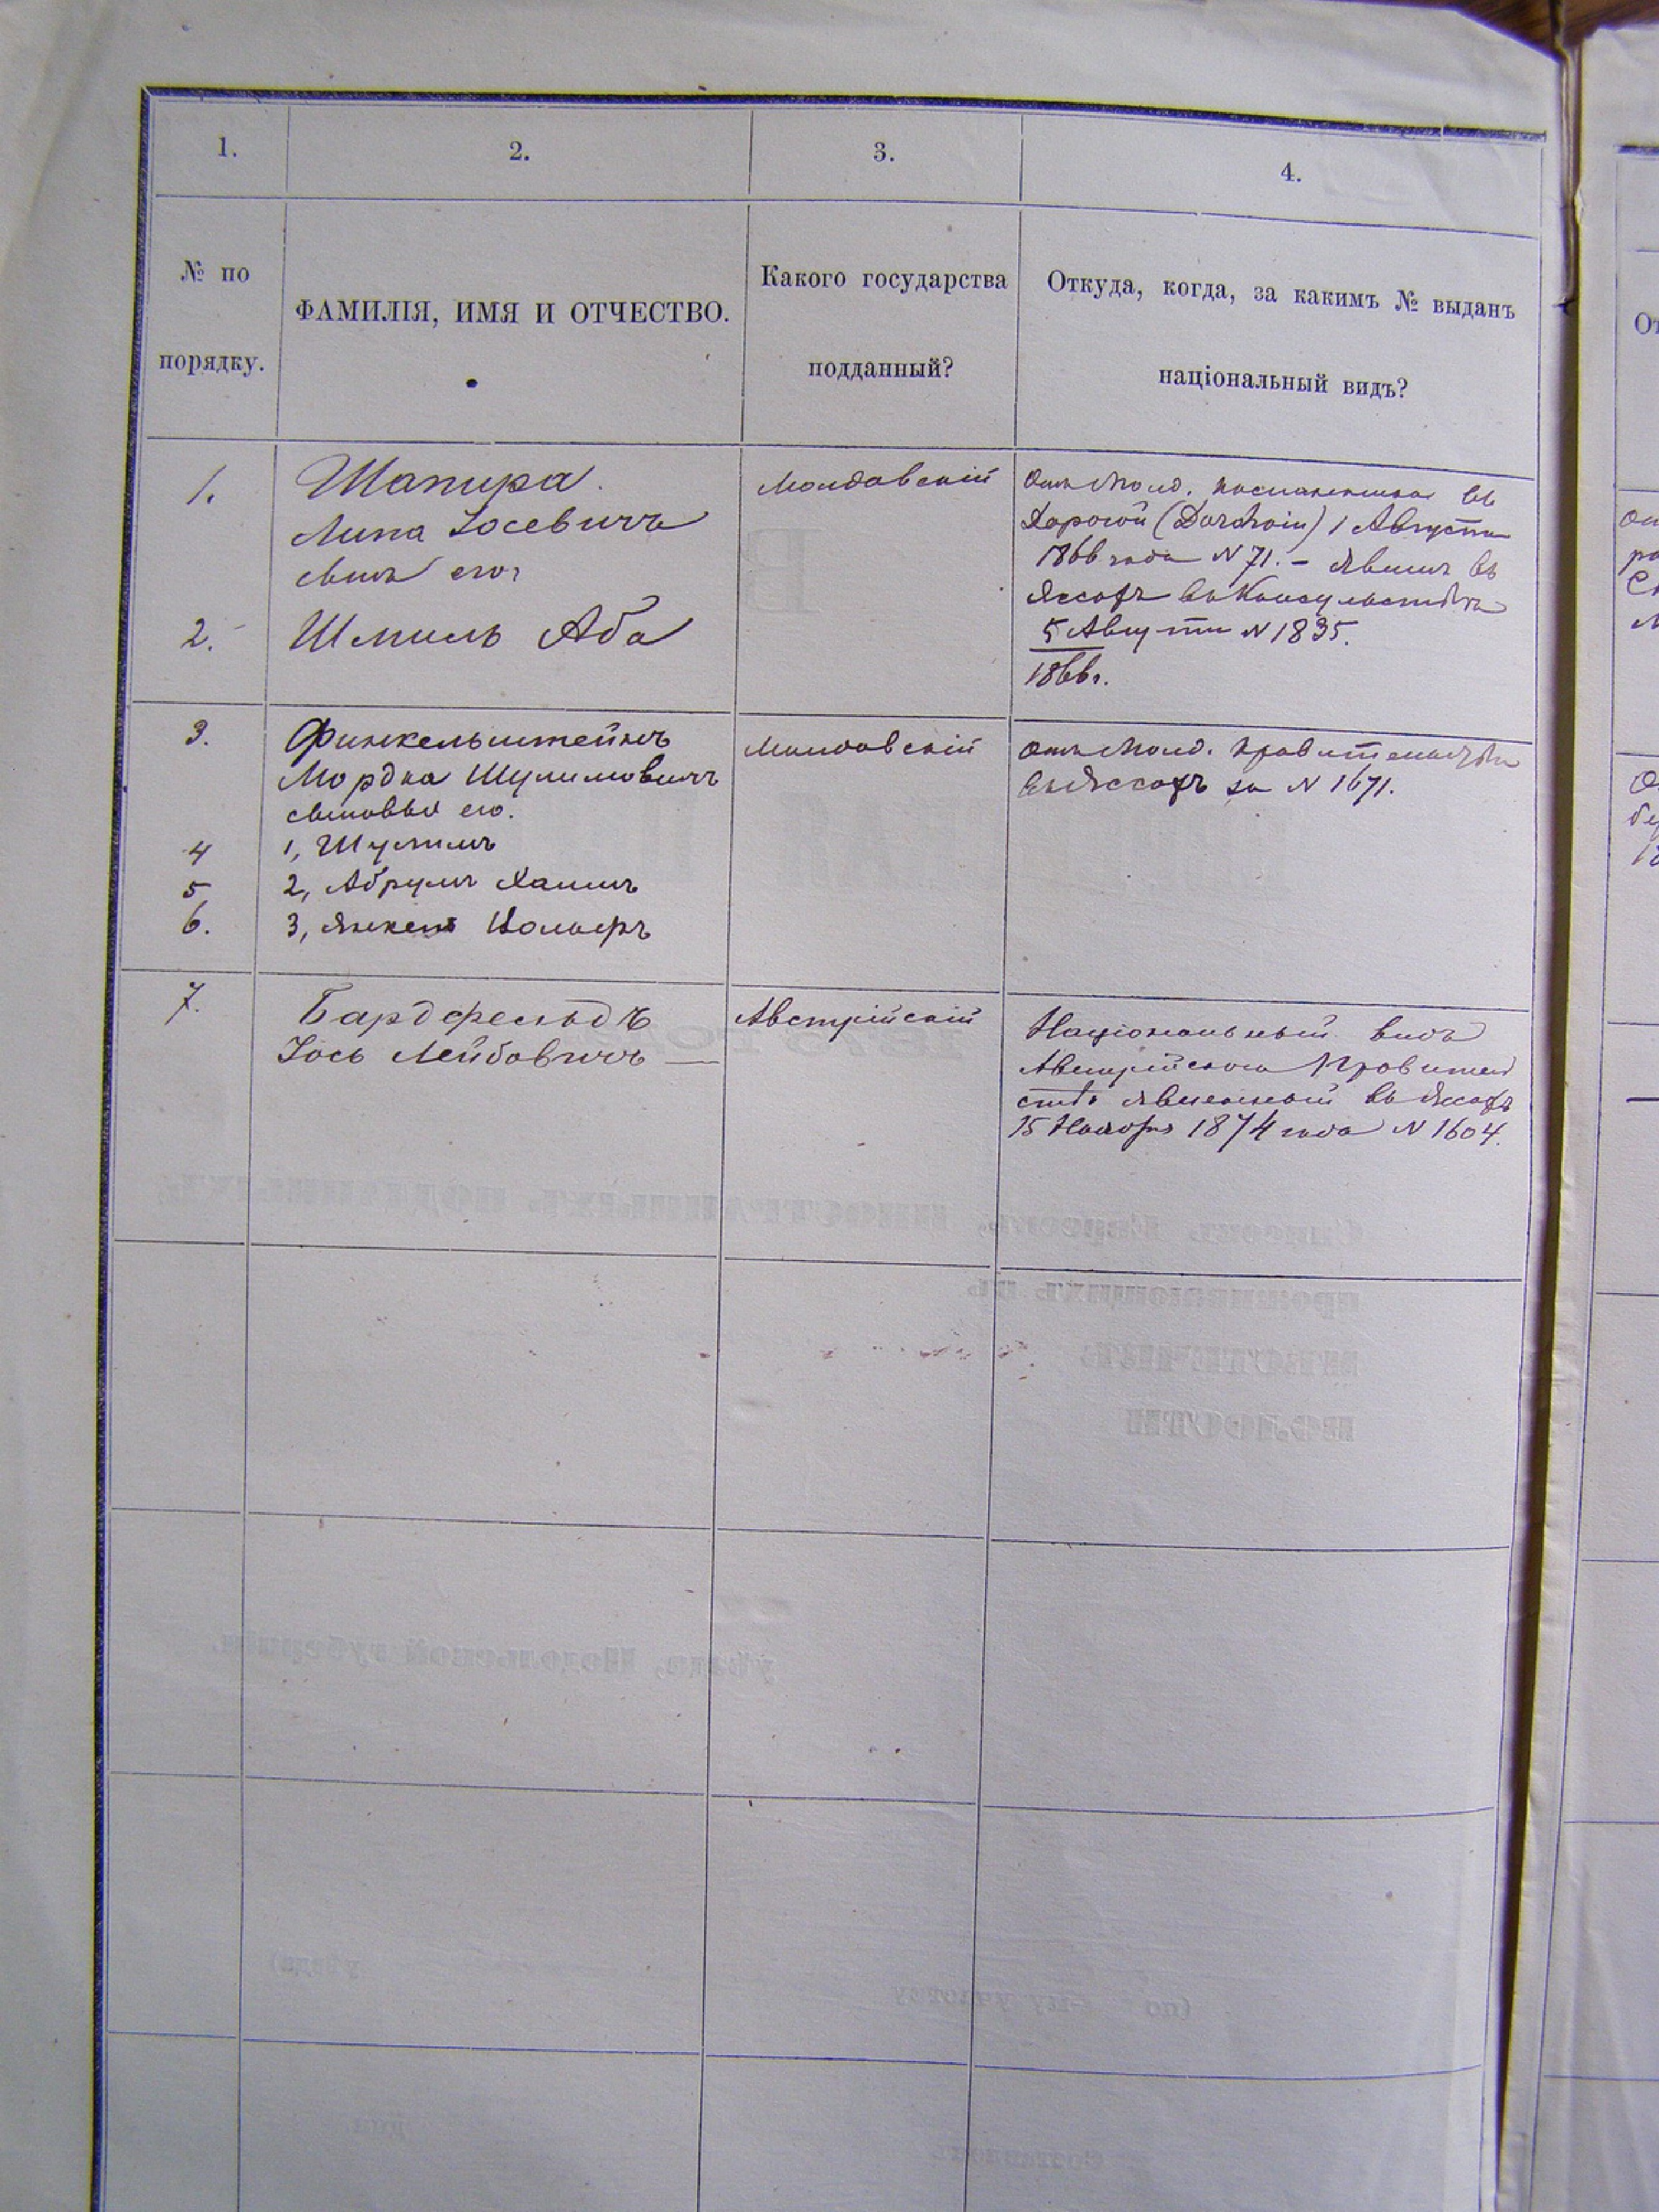 1.
2.
3.
4.
№ по
порядку.
ФАМИЛІЯ, ИМЯ И ОТЧЕСТВО.
Какого государства
подданный?
Откуда, когда, за какимъ № выданъ
національный видъ?
1.
Шапира.
Липа Іосевичъ
сынъ его:
2.
Шмиль Аба
Молдавскій
Отъ Молд. въ
Дорогой (Dorohoiu) 1 Августа
1866 года N 71. – Явленъ въ
Яссахъ въ Консульствѣ
5 Августа N 1835.
1866 г.
3.
Финкельштейнъ
Мордка Шулимовичъ
сыновья его.
4
1, Шулимъ
5
2, Абрумъ Хаимъ
6.
3, Янкель
Молдавскій
Отъ Молд. Правительства
въ Яссахъ за N 1671.
7.
Бардфельдъ
Іось Лейбовичъ —
Австрійскій
Національный видъ
Австрійскаго Правитель
ства явленный въ Яссахъ
15 Ноября 1874 года N 1604.